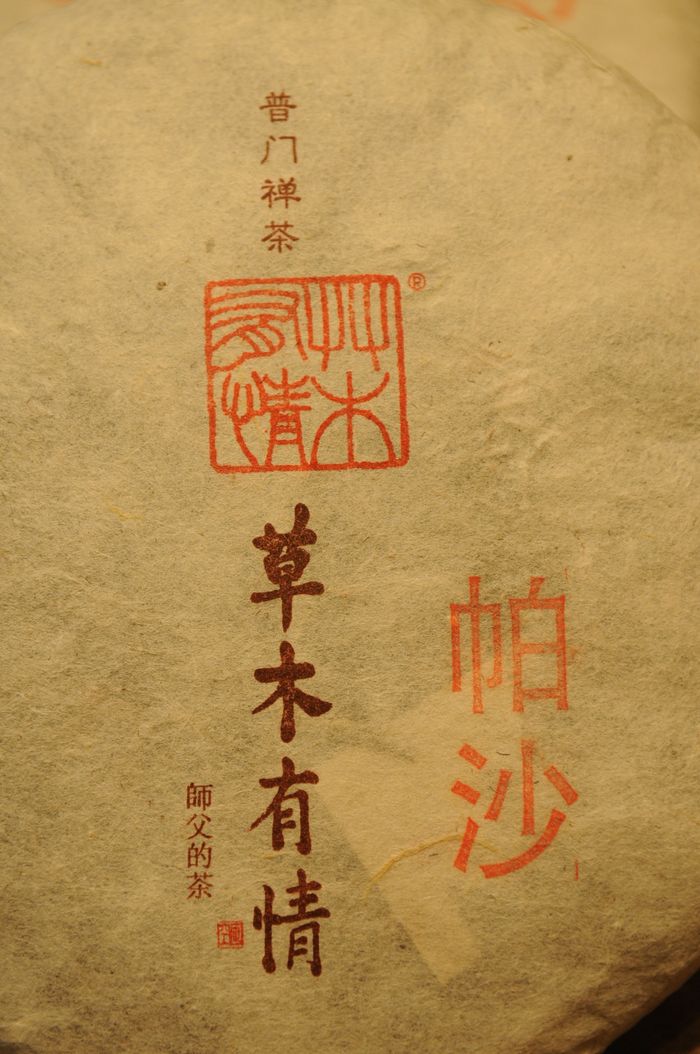 普门禅茶
草木有情
®
草木有情
帕沙
師父的茶